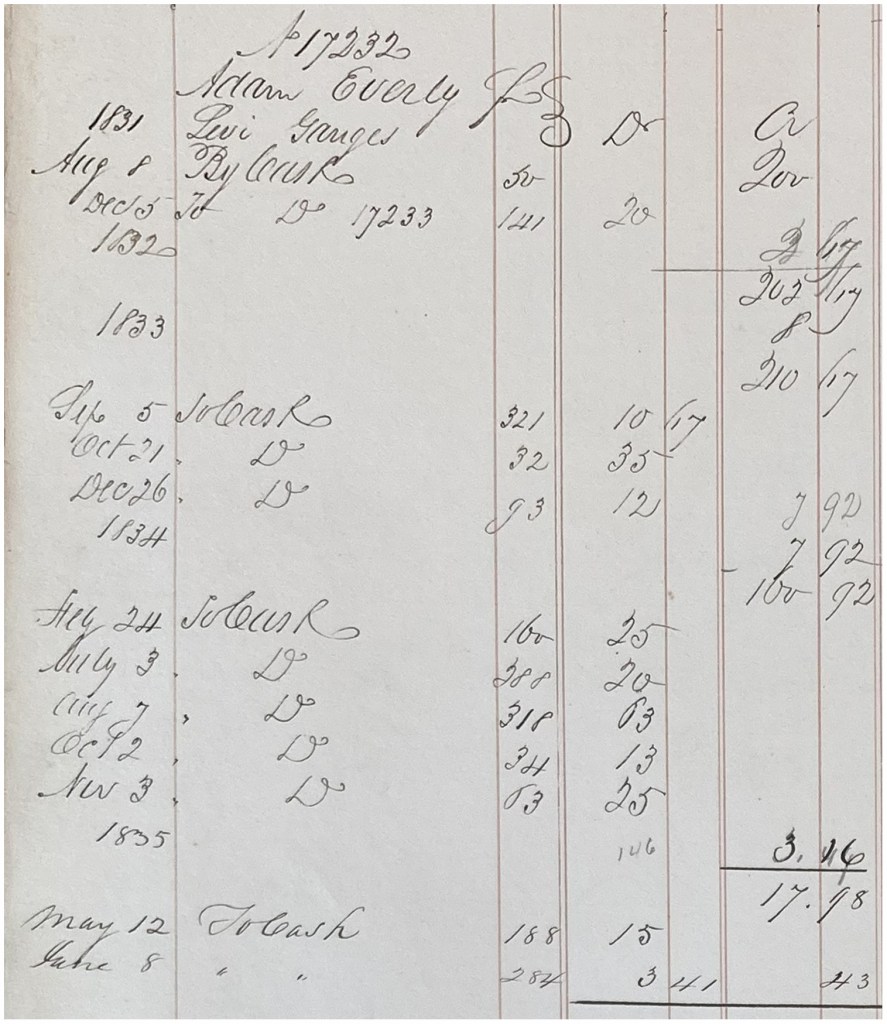 No 17232
Adam Everly for
1831 Levi Ganges Dr Cr
Aug 8 By Cash 50 200
Dec 5 To Do 17233 141 20
1832 2 17
202 17
1833 8
210 17
Sep 5 To Cash 321 10 17
Oct 21 " Do 32 35
Dec 26 " Do 93 12 7 92
1834 7 92
160 92
24 To Cash 160 25
July 3 " Do 288 20
Aug 7 " Do 318 63
Oct 2 " Do 34 13
Nov 3 " Do 63 25
1835 146 3.16
17.98
May 12 To Cash 188 15
June 8 " " 284 3 41 43